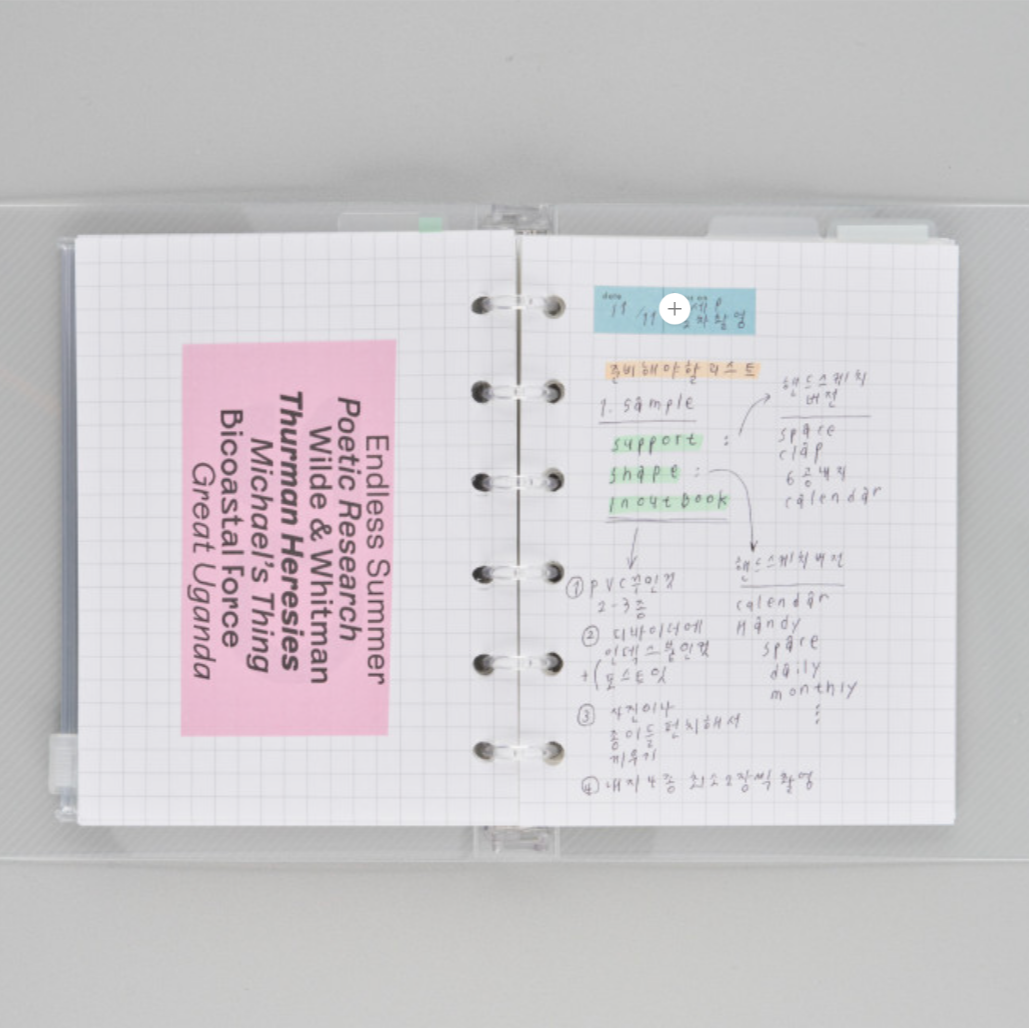 Endless Summer
Poetic Research
Wilde & Whitman
Thurman Heresies
Michael's Thing
Bicoastal Force
Great Uganda
date
11 /11
준비해야할 리스트
1. sample
support :
shape :
inout book
핸드스케치
버전
space
clap
6공내지
calendar
핸드스케치버전
calendar
handy
space
daily
monthly
⋮
① PVC
2-3종
② 디바이더에
인덱스붙인것
+ ( 포스트잇
③ 사진이나
종이들 펀치해서
끼우기
④ 내지 4종 최소2장씩 촬영